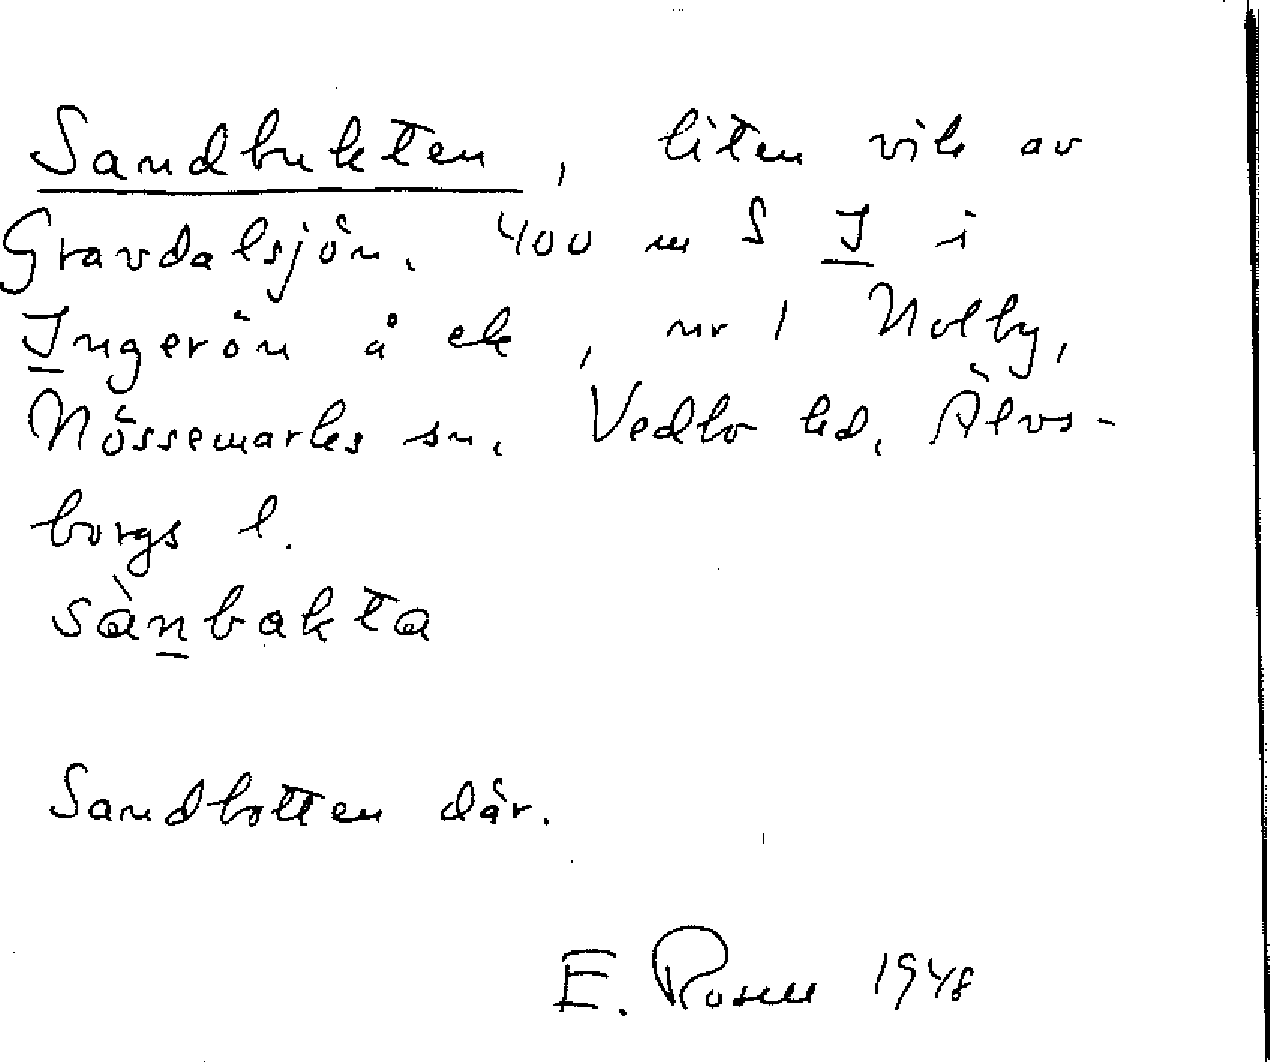 Sandbukten, liten vik av
Gravdalsjön. 400 m S I i
Ingerön å ek, nr 1 Nolby,
Nössemarks sn. Vedbo hd. Älvs-
borgs l.
sànbakta
Sandbotten där.
E. Rosell 1948